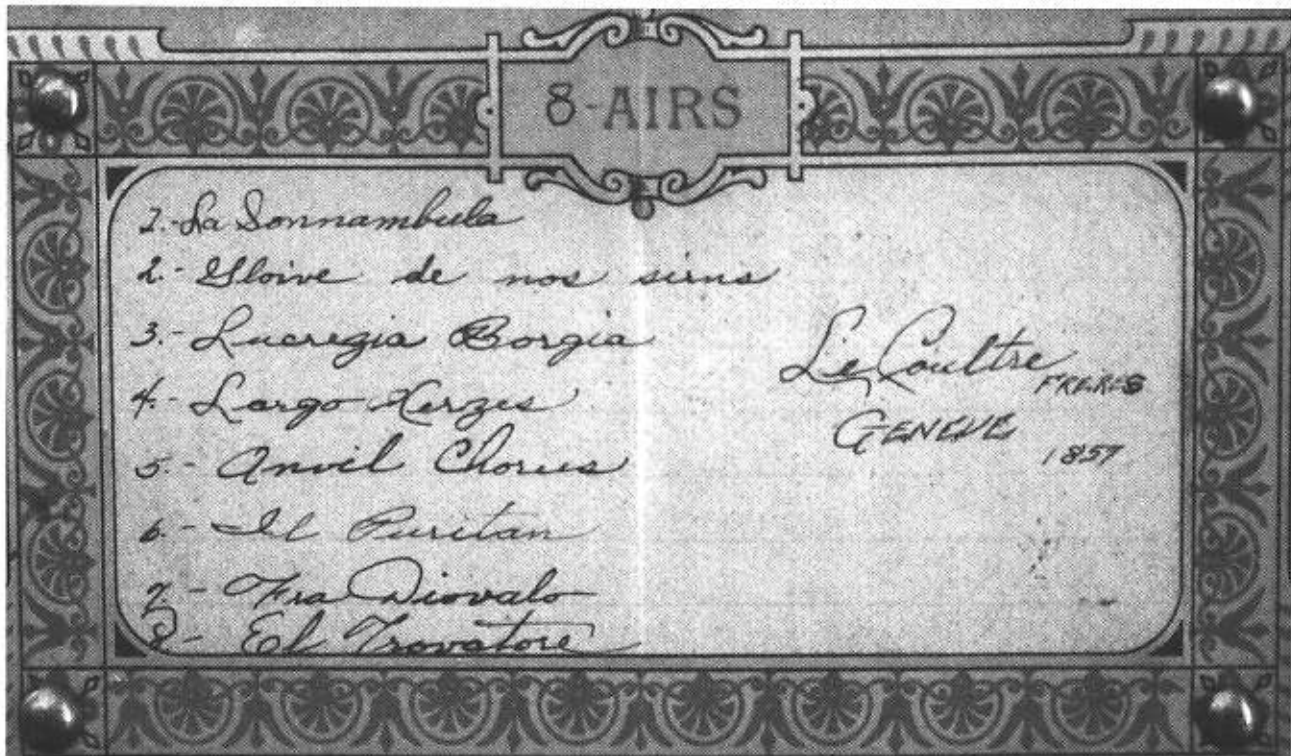 8-AIRS
1.- La Sonnambula
2.- Gloive de nos siens
3.- Lucregia Borgia
4.- Largo Xerzes
5.- Anvil Chorus
6.- Il Puritan
7.- Fra Diovalo
8- El Trovatore
Le Coultre
FRERES
GENEVE
1857